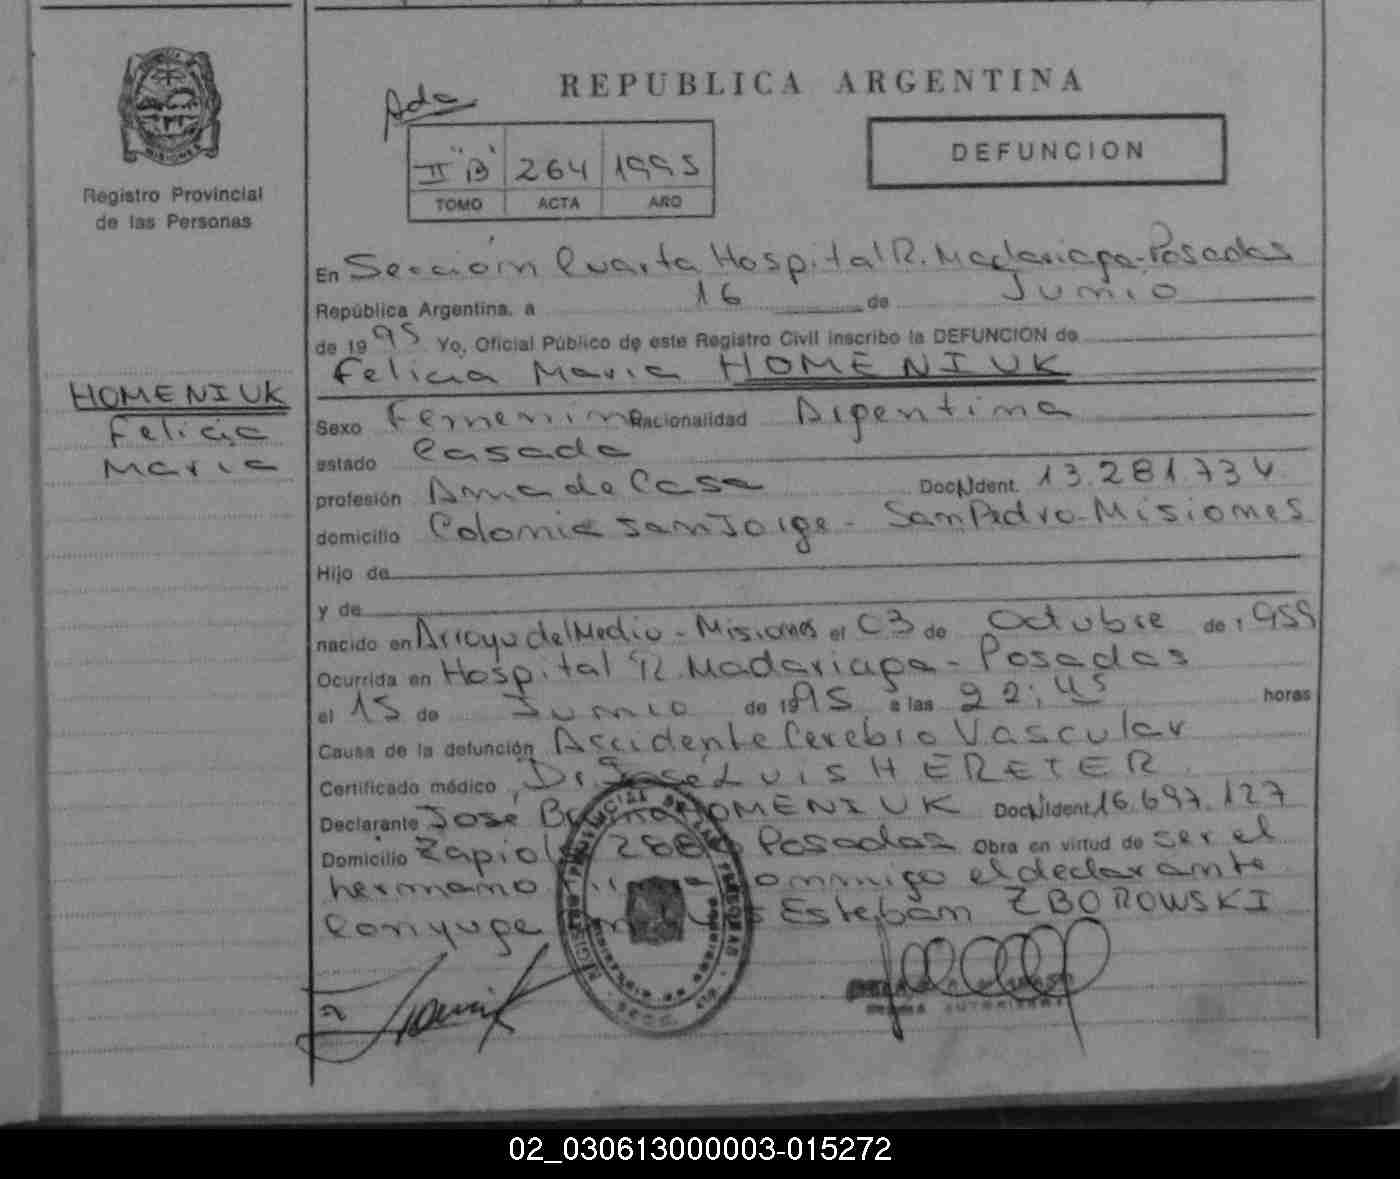 REPUBLICA ARGENTINA
Ada
II "B" 264 1995
TOMO ACTA AÑO
DEFUNCION
MISIONES
Registro Provincial
de las Personas
HOMENIUK
Felicia
Maria
En Sección Cuarta Hospital R. Madariaga-Posadas
República Argentina, a 16 de Junio
de 1995 Yo, Oficial Público de este Registro Civil inscribo la DEFUNCION de
Felicia Maria HOMENIUK
Sexo Femenino nacionalidad Argentina
estado Casada
profesión Ama de Casa Doc. Ident. 13.281.734
domicilio Colonia San Jorge - San Pedro - Misiones
Hijo de
y de
nacido en Arroyo del Medio - Misiones el 03 de Octubre de 1959
Ocurrida en Hospital R. Madariaga - Posadas
el 15 de Junio de 1995 a las 22:45 horas
Causa de la defunción Accidente Cerebro Vascular
Certificado médico, Dr. José Luis HERETER
Declarante José HOMENIUK Doc. Ident. 16.697.127
Domicilio Zapiola Posadas Obra en virtud de ser el
hermano conmigo el declarante
Conyuge Esteban ZBOROWSKI
02_030613000003-015272